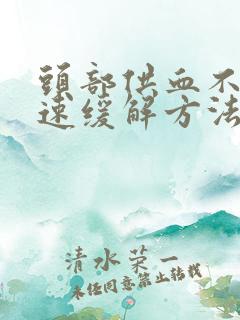 頭部供血不
速缓解方法
清水荣一
未经同意禁止转载